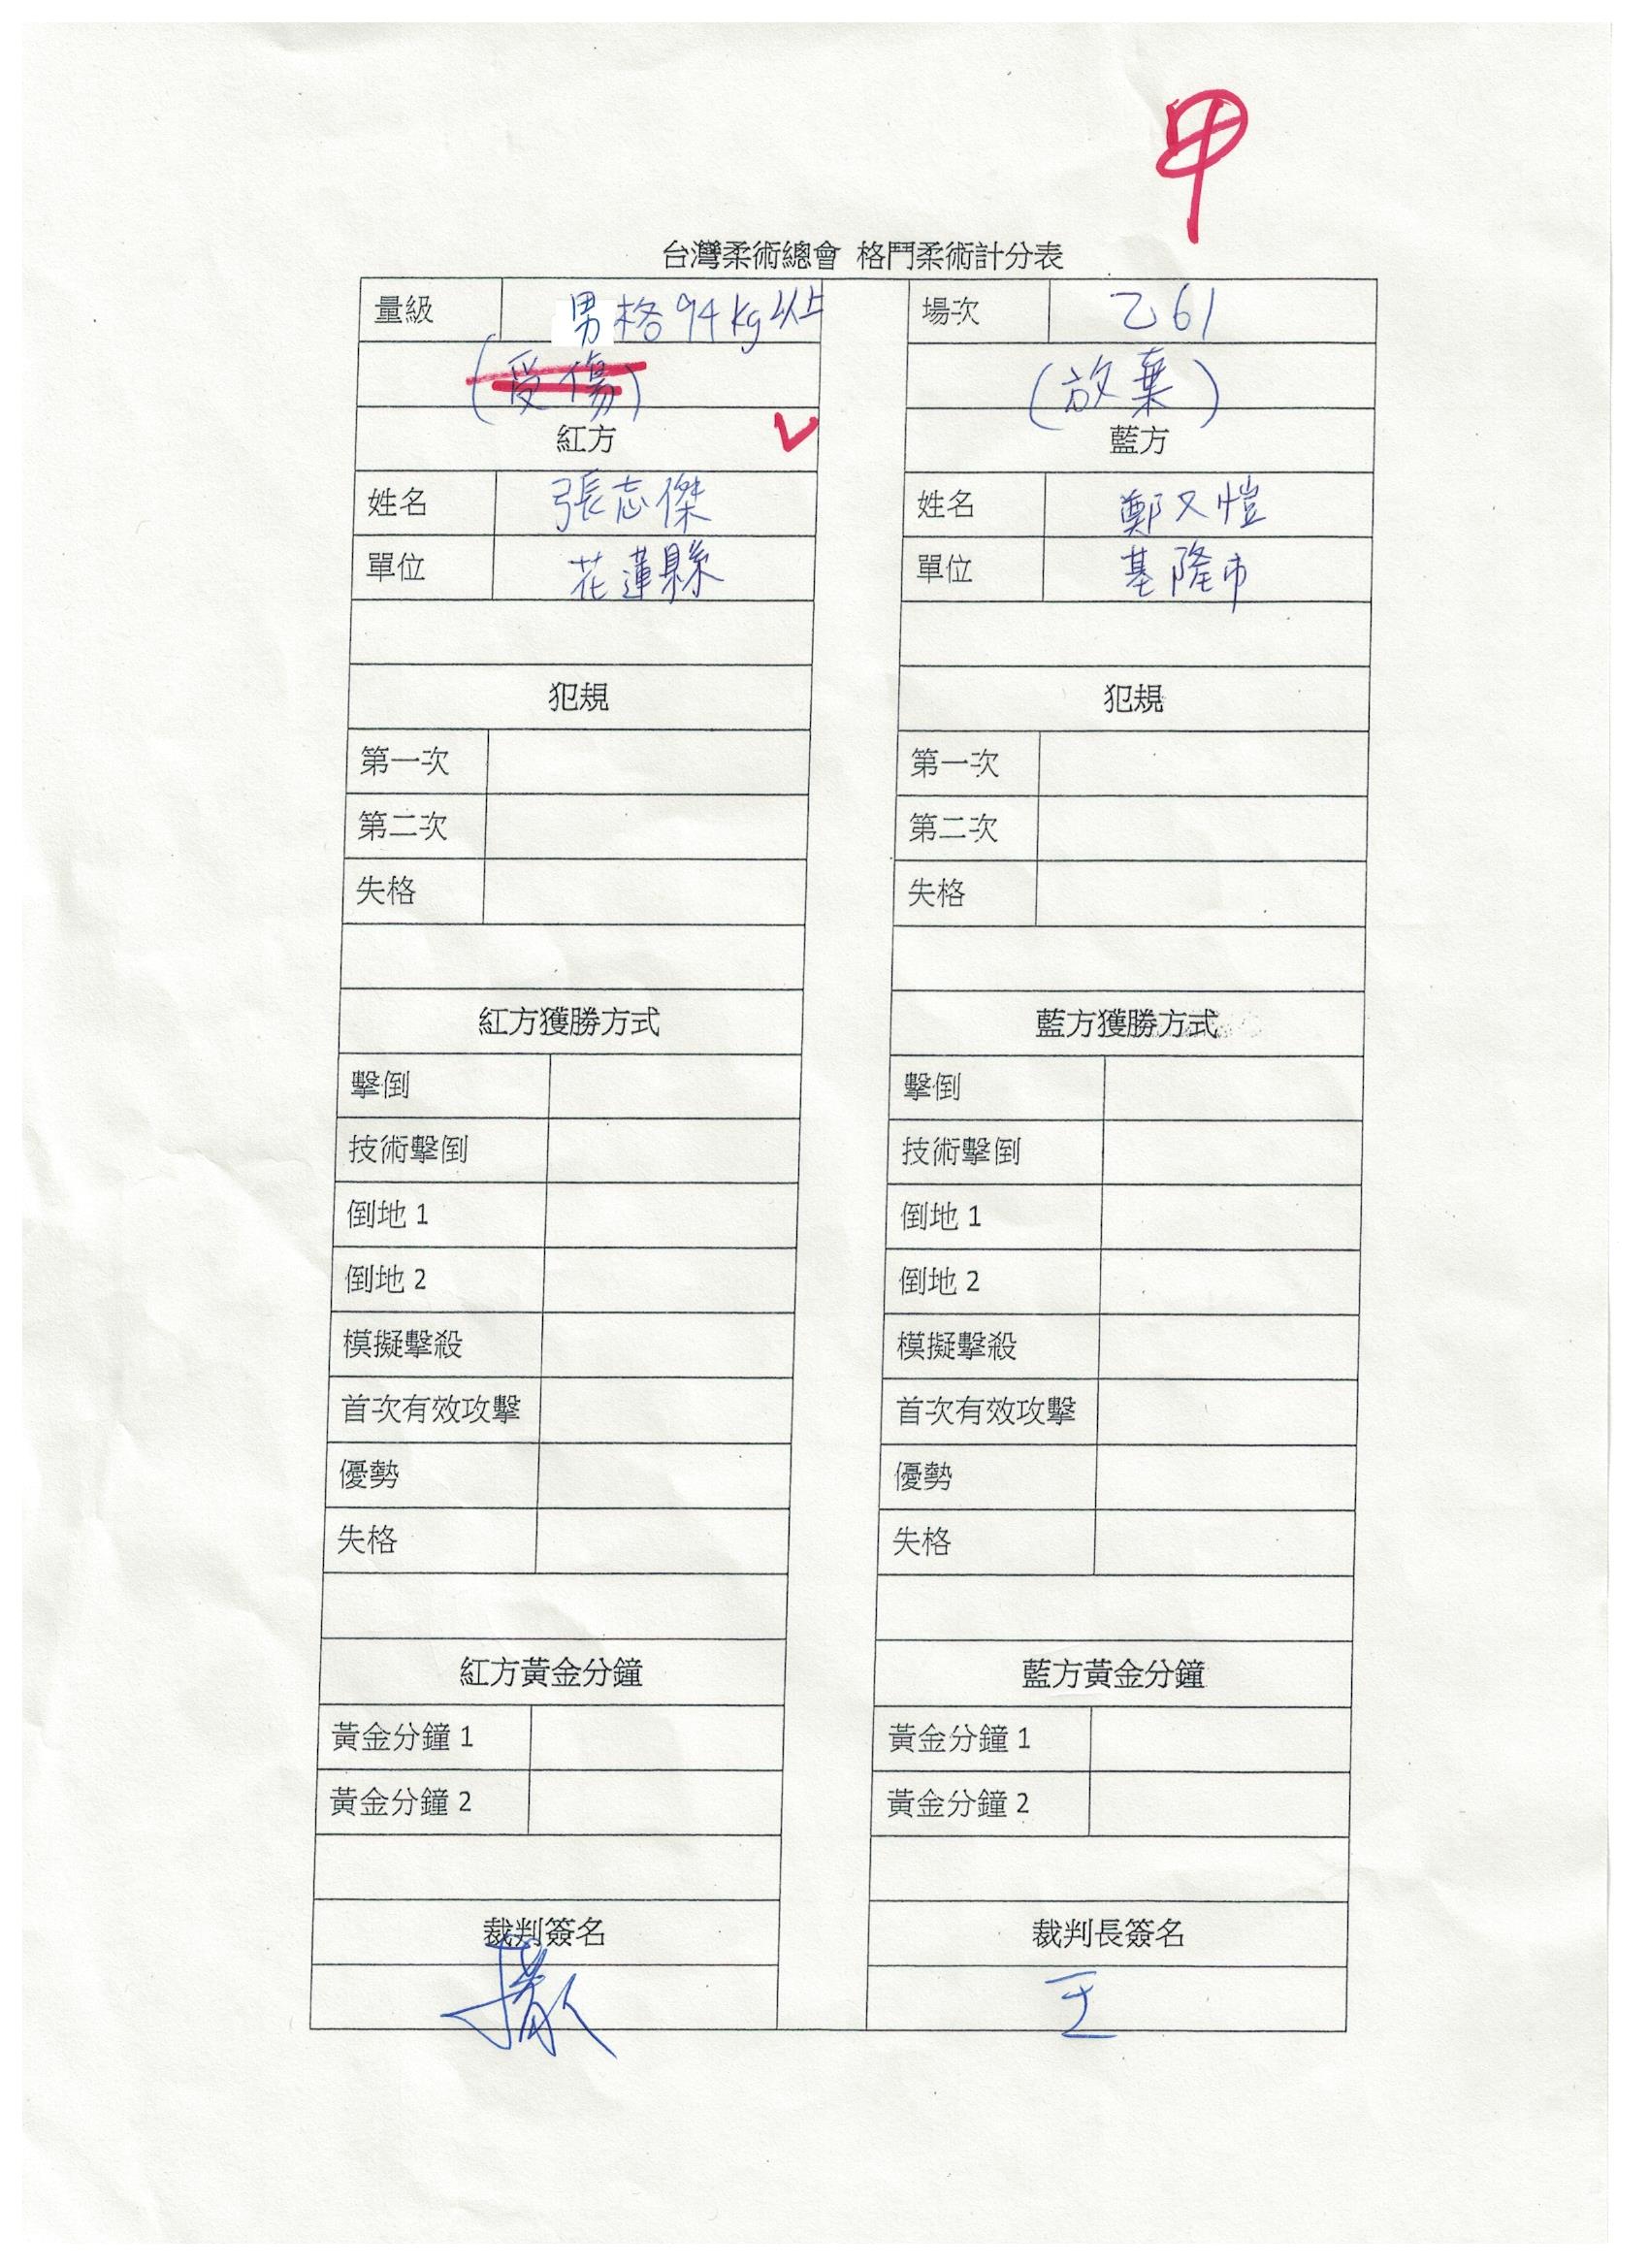 甲
台灣柔術總會 格鬥柔術計分表
量級 男格94kg以上 場次 乙61
(受傷) (放棄)
紅方 ✓ 藍方
姓名 張志傑 姓名 鄭又愷
單位 花蓮縣 單位 基隆市
犯規 犯規
第一次 第一次
第二次 第二次
失格 失格
紅方獲勝方式 藍方獲勝方式
擊倒 擊倒
技術擊倒 技術擊倒
倒地 1 倒地 1
倒地 2 倒地 2
模擬擊殺 模擬擊殺
首次有效攻擊 首次有效攻擊
優勢 優勢
失格 失格
紅方黃金分鐘 藍方黃金分鐘
黃金分鐘 1 黃金分鐘 1
黃金分鐘 2 黃金分鐘 2
裁判簽名 裁判長簽名
王